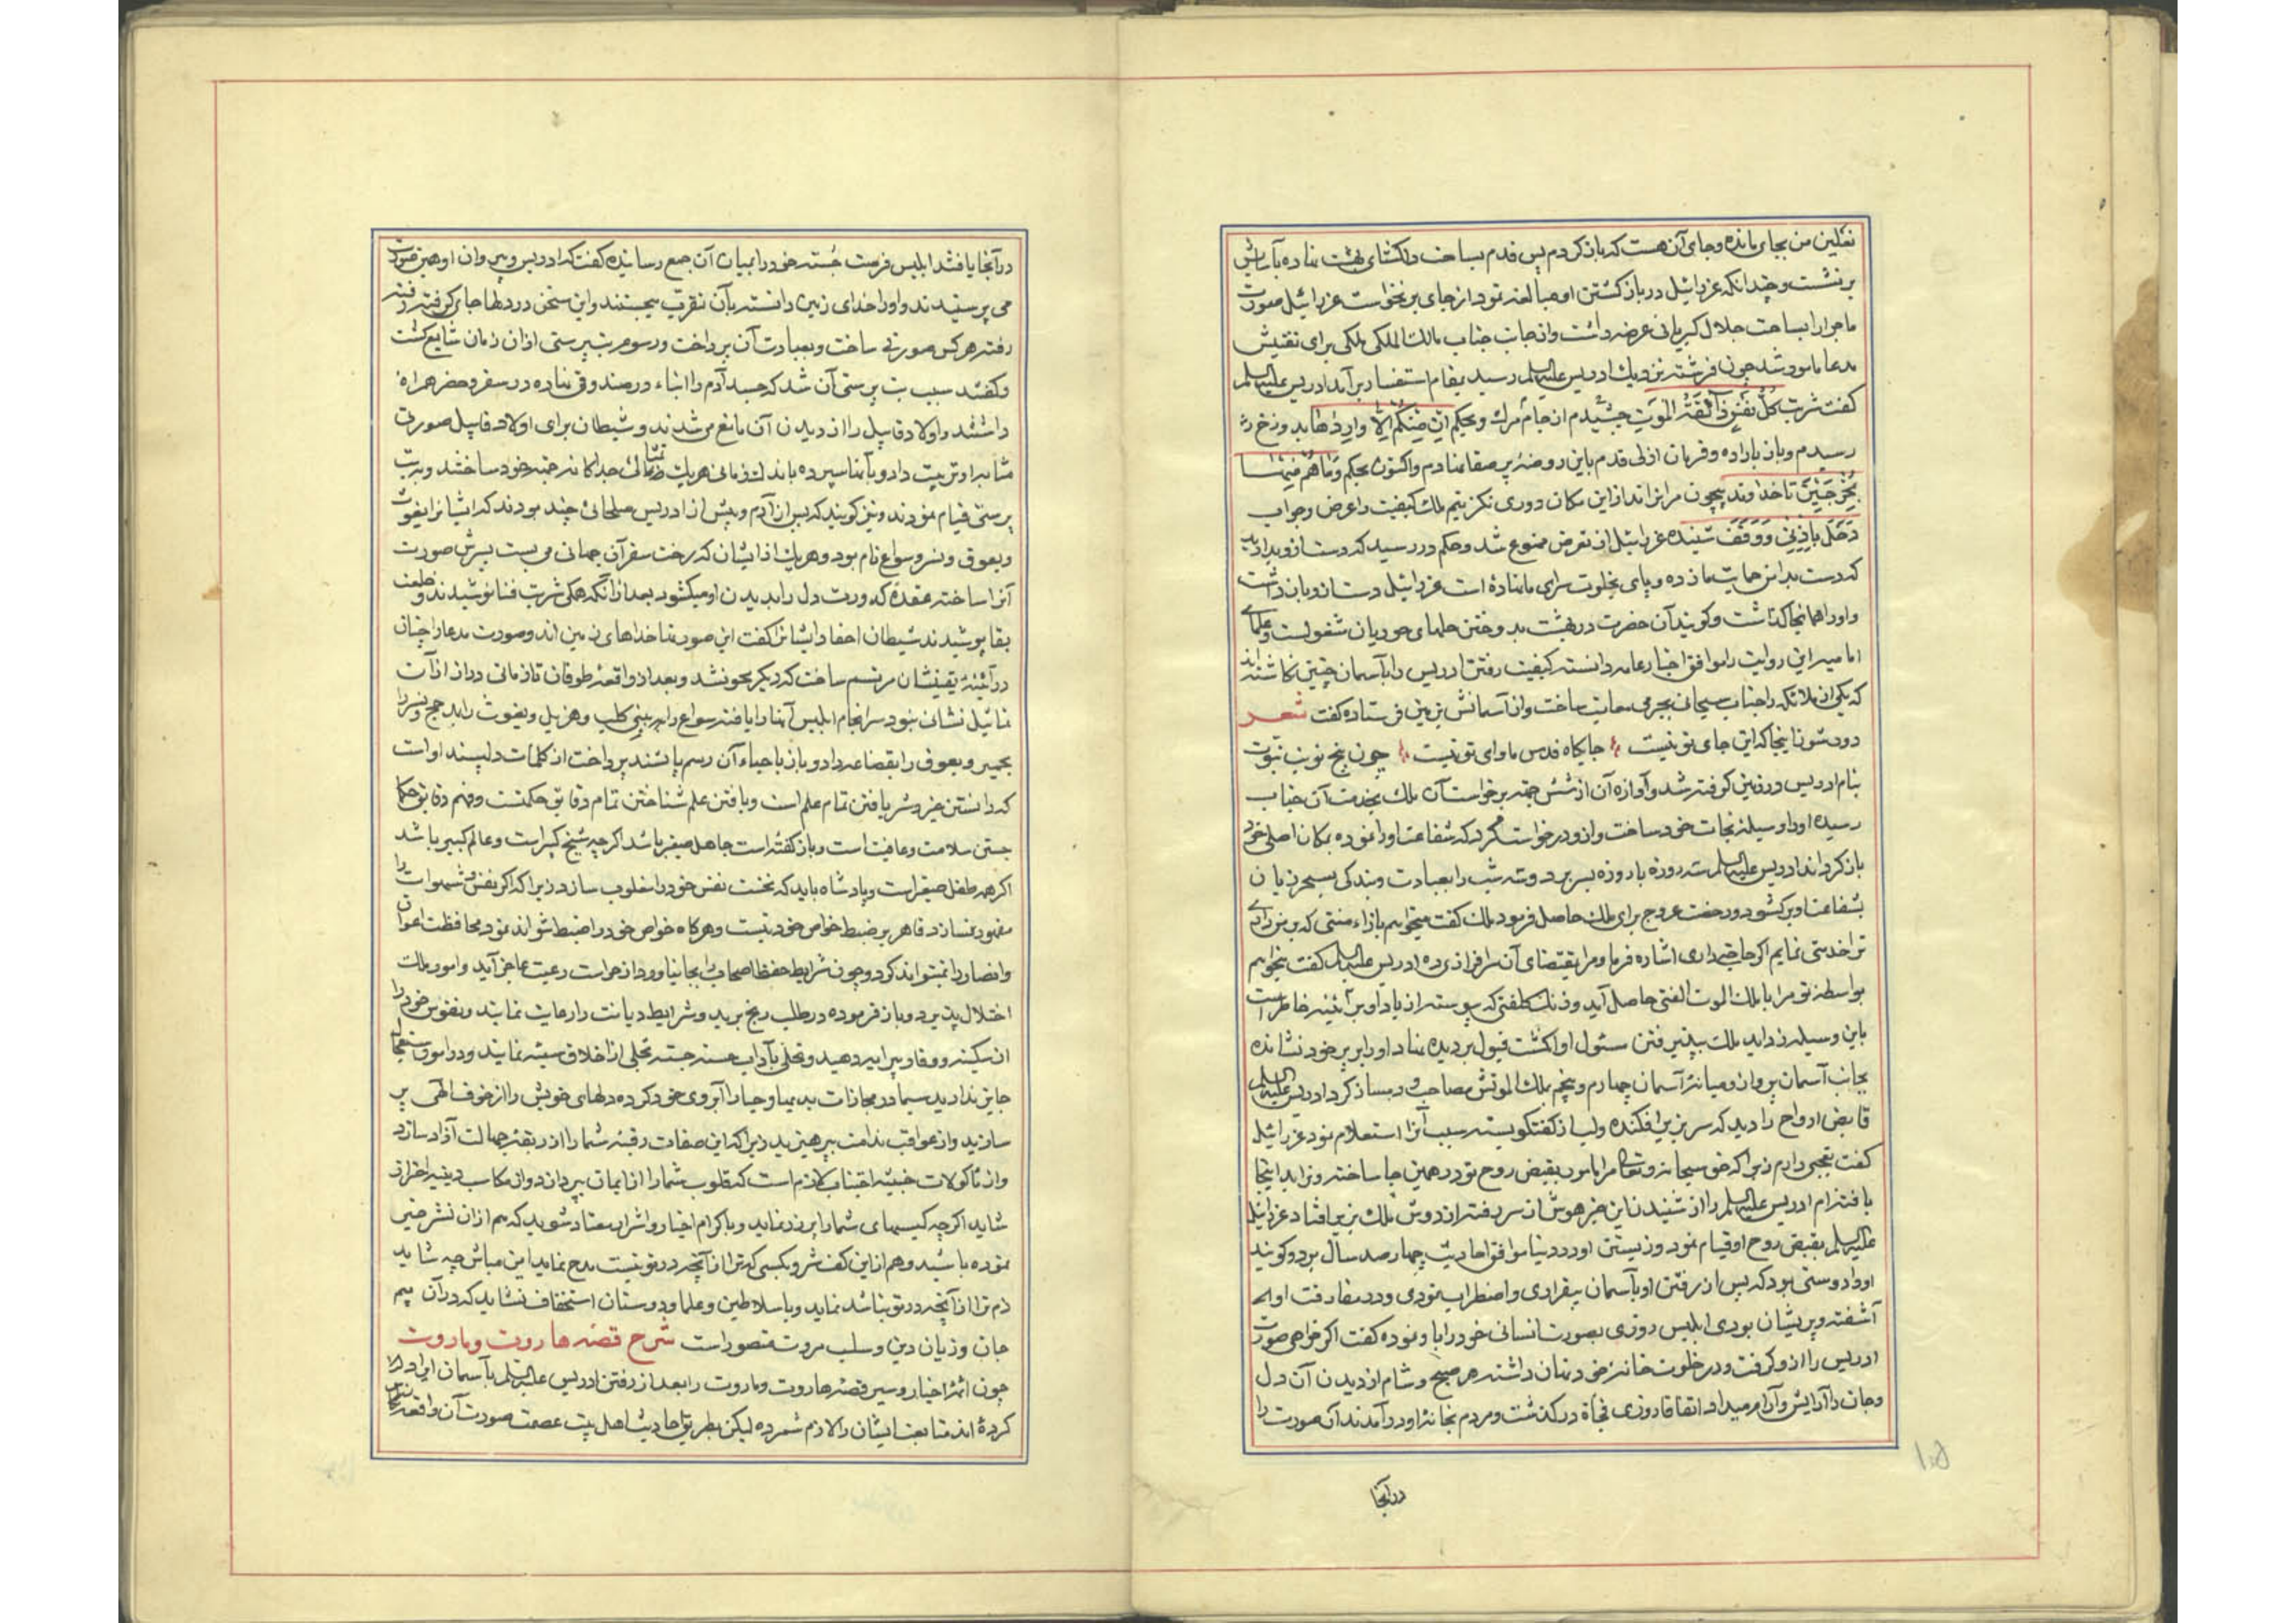 نعلین من بجای مانده و جای آن هست که باز کردم پس قدم بساحت دلکشای بهشت نهاده بآسایش
بر نشست و چندانکه عزرائیل در باز کشتن او مبالغه نمود از جای بر نخواست عزرائیل صورت
ماجرا را بساحت جلال کبریائی عرضه داشت و از جانب جناب مالک الملکی ملکی برای تفتیش
مدعا مامور شد چون فرشته نزدیک ادریس علیه السلم رسید بمقام استفسار برآمد ادریس علیه السلم
کفت شربت کُلُّ نَفْسٍ ذآئِقَةُ المَوْتِ چشیدم از جام مرک و بحکم اِنْ مِنْکُمْ اِلّا وارِدُها بدوزخ در
رسیدم و باز باراده و فرمان ازلی قدم باین روضهٔ پر صفا نهادم و اکنون بحکم وَما هُمْ مِنْها
بِمُخْرَجینَ تا خداوند بیچون مرا نراند از این مکان دوری نکزینم ملک کیفیت را عرض و جواب
دَخَلَ بِاِذْنی وَ وَقَفَ شنیده عزرائیل از تعرض ممنوع شد و حکم در رسید که دست از و بدارید
که دست بدامن حمایت ما زده و پای بخلوت سرای ما نهاده است عزرائیل دست از و باز داشت
و او را همانجا کذاشت و کویند آن حضرت در بهشت بدوختن حلهای حوریان مشغولست و علمای
امامیه این روایت را موافق اخبار عامه دانسته کیفیت رفتن ادریس را بآسمان چنین نکاشته اند
که یکی از ملائکه را جناب سبحانی بجرمی معاتب ساخت و از آسمانش بزمین فرستاده کفت شعر
دور شو زاینجا که این جای تو نیست جایکاه قدس ماوای تو نیست چون پنج نوبت نبوت
بنام ادریس در زمین کوفته شد و آوازه آن از شش جهة برخواست آن ملک بخدمت آن جناب
رسیده او را وسیلهٔ نجات خود ساخت و از و درخواست کرد که شفاعت او را نموده بمکان اصلی خود
باز کرداند ادریس علیه السلم سه روزه با روزه بسر برد و سه شب را بعبادت و بندکی بسحر زبان
بشفاعت او بر کشود و رخصت عروج برای ملک حاصل فرمود ملک کفت میخواهم بازاء منتی که بر من داری
ترا خدمتی نمایم اکر حاجتی داری اشاره فرما و مرا بمقتضای آن سرافرازی ده ادریس علیه السلم کفت میخواهم
بواسطهٔ تو مرا با ملک الموت الفتی حاصل آید و زنک کلفتی که پیوسته از یاد او بر آئینه خاطر است
باین وسیله زداید ملک بپذیرفتن مسئول او انکشت قبول بر دیده نهاد او را بر پر خود نشانده
بجانب آسمان پرواز و میانهٔ آسمان چهارم و پنجم بملک الموتش مصاحب و دمساز کرد ادریس علیه السلم
قابض ارواح را دید که سر بزیر افکنده و لب از کفتکو بسته سبب آنرا استعلام نمود عزرائیل
کفت تعجبی دارم زیرا که حق سبحانه و تعالی مرا مامور بقبض روح تو در همین جا ساخته و ترا بد اینجا
یافته ام ادریس علیه السلم را از شنیدن این خبر هوش از سر رفته از دوش ملک بزیر افتاد عزرائیل
علیه السلم بقبض روح او قیام نمود و زیستن او در دنیا موافق احادیث چهار صد سال بود و کویند
او را دوستی بود که پس از رفتن او بآسمان بیقراری و اضطراب نمودی و در مفارقت او
آشفته و پریشان بودی ابلیس روزی بصورت انسانی خود را باو نموده کفت اکر خواهی صورت
ادریس را از و کرفت و در خلوت خانهٔ خود نهان داشته هر صبح و شام از دیدن آن دل
و جان را آرایش و آرام میداد اتفاقا روزی فجأة در کذشت و مردم بخانهٔ او در آمدند آن صورت را
درآنجا
درآنجا یافتند ابلیس فرصت جُسته خود را بمیان آن جمع رسانیده کفت که ادریس و پیروان او همین صورت
می پرستیدند و او را خدای زمین دانسته بآن تقرب میجستند و این سخن در دلها جای کرفته رفته
رفته هر کس صورتی ساخت و بعبادت آن پرداخت و رسوم بت پرستی از ان زمان شایع کشت
و کفتند سبب بت پرستی آن شد که جسد آدم را ابناء در صندوقی نهاده در سفر و حضر همراه
داشتند و اولاد قابیل را از دیدن آن مانع می شدند و شیطان برای اولاد قابیل صورتی
مشابه او تربیت داد و بآنها سپرده باندک زمانی هر یک تمثالی جداکانه جهة خود ساختند و به بت
پرستی قیام نمودند و نیز کویند که پس از آدم و پیش از ادریس صلحائی چند بودند که ایشانرا یغوث
و یعوق و نسر و سواع نام بود و هر یک از ایشان که رخت سفر آن جهانی می بست پسرش صورت
آنرا ساخته عقدهٔ کدورت دل را بدیدن او میکشود بعد از آنکه همکی شربت فنا نوشیدند و خلعت
بقا پوشیدند شیطان احفاد ایشانرا کفت این صورتها خداهای زمین اند و صورت مدعا را چنان
در آئینهٔ یقینشان مرتسم ساخت که دیکر محو نشد و بعد از واقعهٔ طوفان تا زمانی دراز از آن
تماثیل نشان نبود سرانجام ابلیس آنها را یافته سواع را به بنی کلب و هزیل و یغوث را بمذحج و نسر را
بحمیر و یعوق را بقضاعه داد و باز باحیاء آن رسم ناپسند پرداخت از کلمات دلپسند او است
که دانستن خیر و شر یافتن تمام علم است و یافتن علم شناختن تمام دقایق حکمتست و فهم دقایق حکما
جستن سلامت و عافیت است و باز کفته است جاهل صغیر باشد اکر چه شیخ کبیر است و عالم کبیر باشد
اکر چه طفل صغیر است و پادشاه باید که نخست نفس خود را مغلوب سازد زیرا که اکر نفس و شهوات را
مقهور نسازد قاهر بر ضبط خواص خود نیست و هر کاه خواص خود را ضبط نتواند نمود محافظت اعوان
و انصار را نمیتواند کرد و چون شرایط حفظ اصحاب را بجا نیاورد از حراست رعیت عاجز آید و امور ملک
اختلال پذیرد و باز فرموده در طلب رنج برید و شرایط دیانت را رعایت نمایند و نفوس خود را
از سکینه و وقار پیرایه دهید و تحلی بآداب حسنه جسته تخلی از اخلاق سیئه نمایند و در امور استعجال
جایز ندارید سیما در مجازات بدیها و حیا را آبروی خود کرده دلهای خویش را از خوف الهی پر
سازید و از عواقب ندامت بپرهیزید زیرا که این صفات رقبهٔ شما را از ربقهٔ جهالت آزاد سازد
و از ماکولات خبیثه اجتناب لازم است که قلوب شما را از ایمان بپردازد و از مکاسب دینیه احتراز
شاید اکر چه کیسهای شما را پر زر نماید و باکرام اخیار و اشرار معتاد شوید که هم از ان نشر خیر
نموده باشید و هم از این کف شر و بکسی که ترا از آنچه در تو نیست مدح نماید ایمن مباش چه شاید
ذم ترا از آنچه در تو نباشد نماید و با سلاطین و علما و دوستان استخفاف نشاید که در آن بیم
جان و زیان دین و سلب مروت متصور است شرح قصّه هاروت و ماروت
چون ائمهٔ اخبار و سیر قصهٔ هاروت و ماروت را بعد از رفتن ادریس علیه السلم بآسمان ایراد
کرده اند متابعت ایشان را لازم شمرده لیکن بطریق احادیث اهل بیت عصمت صورت آن واقعه